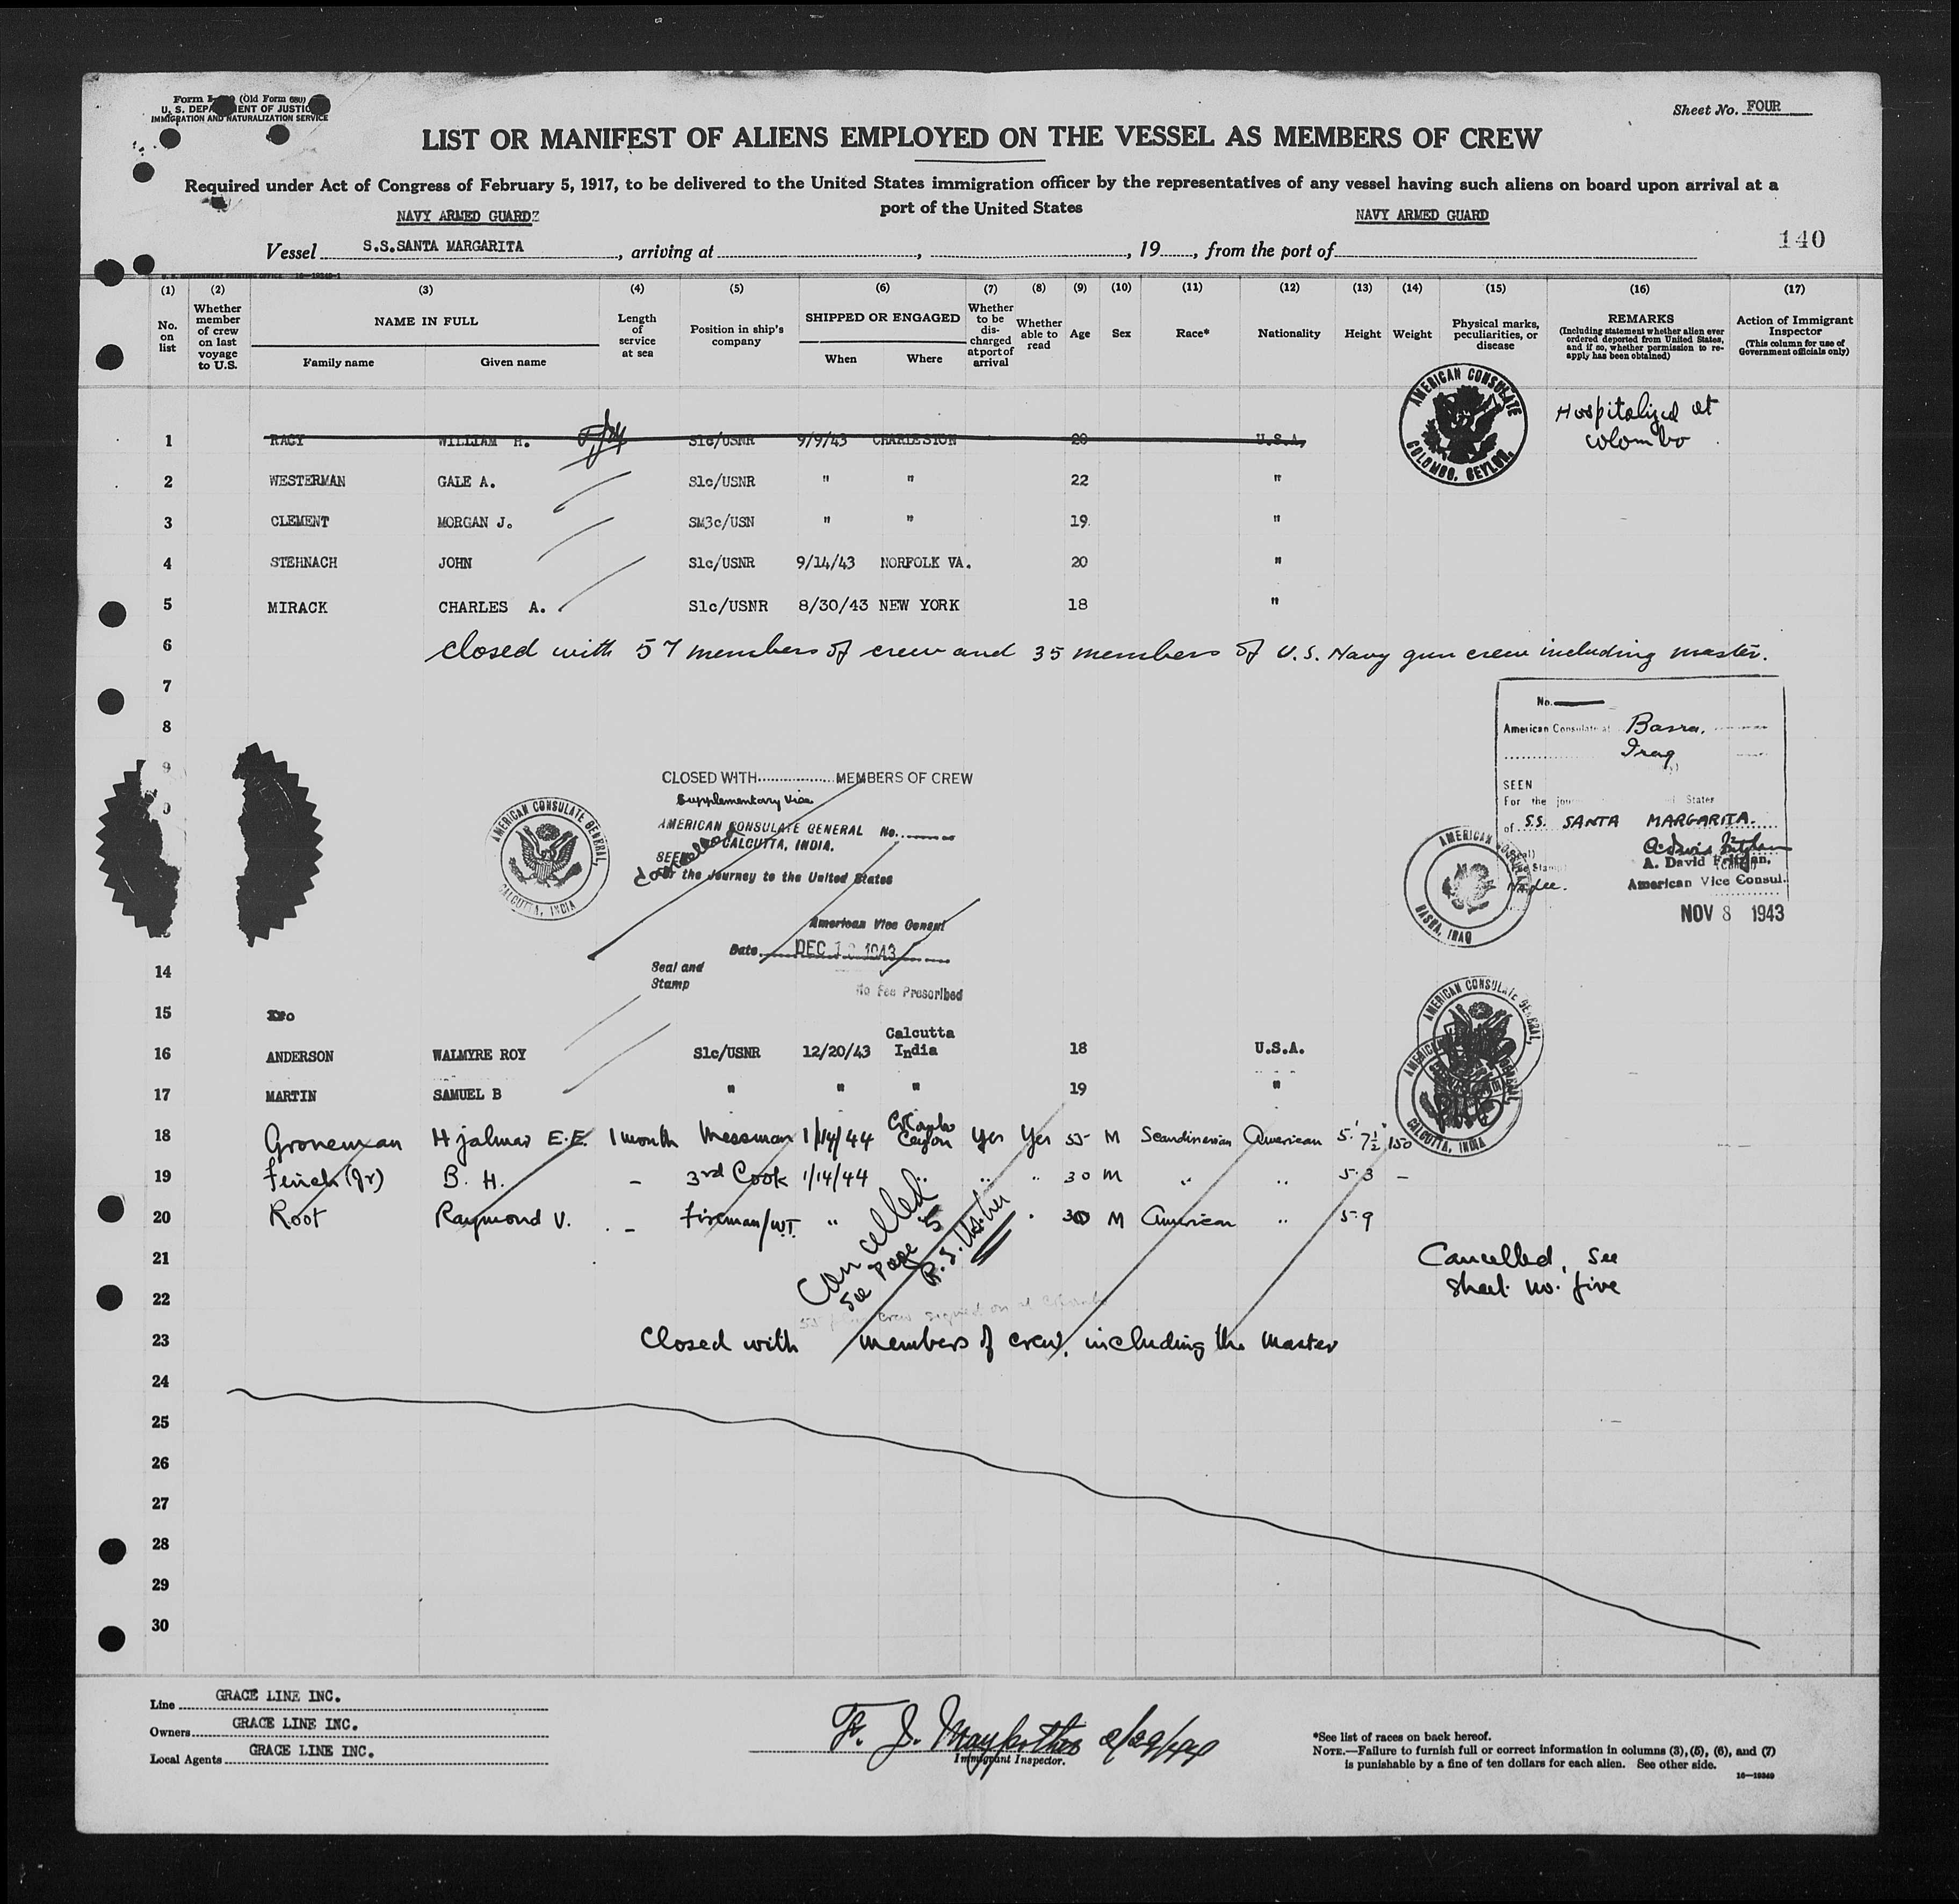 Form (Old Form 680)
U. S. DEPARTMENT OF JUSTICE
IMMIGRATION AND NATURALIZATION SERVICE
Sheet No. FOUR
LIST OR MANIFEST OF ALIENS EMPLOYED ON THE VESSEL AS MEMBERS OF CREW
Required under Act of Congress of February 5, 1917, to be delivered to the United States immigration officer by the representatives of any vessel having such aliens on board upon arrival at a
port of the United States
NAVY ARMED GUARD
NAVY ARMED GUARD
140
Vessel S.S.SANTA MARGARITA, arriving at, , 19, from the port of
(1) (2) (3) (4) (5) (6) (7) (8) (9) (10) (11) (12) (13) (14) (15) (16) (17)
No. on list
Whether member of crew on last voyage to U.S.
NAME IN FULL
Family name Given name
Length of service at sea
Position in ship's company
SHIPPED OR ENGAGED
When Where
Whether to be discharged at port of arrival
Whether able to read
Age
Sex
Race*
Nationality
Height
Weight
Physical marks, peculiarities, or disease
REMARKS
(Including statement whether alien ever ordered deported from United States, and if so, whether permission to re-apply has been obtained)
Action of Immigrant Inspector
(This column for use of Government officials only)
AMERICAN CONSULATE COLOMBO, CEYLON.
Hospitalized at
Colombo
1 RAGY WILLIAM H. S1c/USNR 9/9/43 CHARLESTON 20 U.S.A.
2 WESTERMAN GALE A. S1c/USNR " " 22 "
3 CLEMENT MORGAN J. SM3c/USN " " 19 "
4 STEHNACH JOHN S1c/USNR 9/14/43 NORFOLK VA. 20 "
5 MIRACK CHARLES A. S1c/USNR 8/30/43 NEW YORK 18 "
6 Closed with 57 members of crew and 35 members of U.S. Navy gun crew including master.
7
8
9
No.
American Consulate at Basra,
Iraq
SEEN
For the jou States
of S.S. SANTA MARGARITA.
A. David Fritzlan,
American Vice Consul.
NOV 8 1943
AMERICAN CONSULATE BASRA, IRAQ
CLOSED WITH MEMBERS OF CREW
Supplementary Visa
AMERICAN CONSULATE GENERAL No.
CALCUTTA, INDIA.
SEEN
Cancelled
For the Journey to the United States
American Vice Consul
Date DEC 1 1943
Seal and
Stamp
No Fee Prescribed
AMERICAN CONSULATE GENERAL, CALCUTTA, INDIA
14
15
16 ANDERSON WALMYRE ROY S1c/USNR 12/20/43 Calcutta India 18 U.S.A.
17 MARTIN SAMUEL B " " " 19 "
AMERICAN CONSULATE GENERAL,
CALCUTTA, INDIA
18 Groneman Hjalmar E.E. 1 month Messman 1/14/44 Colombo Ceylon Yes Yes 55 M Scandinavian American 5' 7½" 150
19 Finch (Jr) B. H. - 3rd Cook 1/14/44 " " " 30 M " " 5-3 -
20 Root Raymond V. - Fireman/W.T. " " 30 M American " 5-9
21
22
Cancelled
see Page 5
Cancelled, see
sheet no. five
23 Closed with members of crew, including the Master
24
25
26
27
28
29
30
Line GRACE LINE INC.
Owners GRACE LINE INC.
Local Agents GRACE LINE INC.
2/29/44
Immigrant Inspector.
*See list of races on back hereof.
NOTE.—Failure to furnish full or correct information in columns (3), (5), (6), and (7)
is punishable by a fine of ten dollars for each alien. See other side.
16—19349